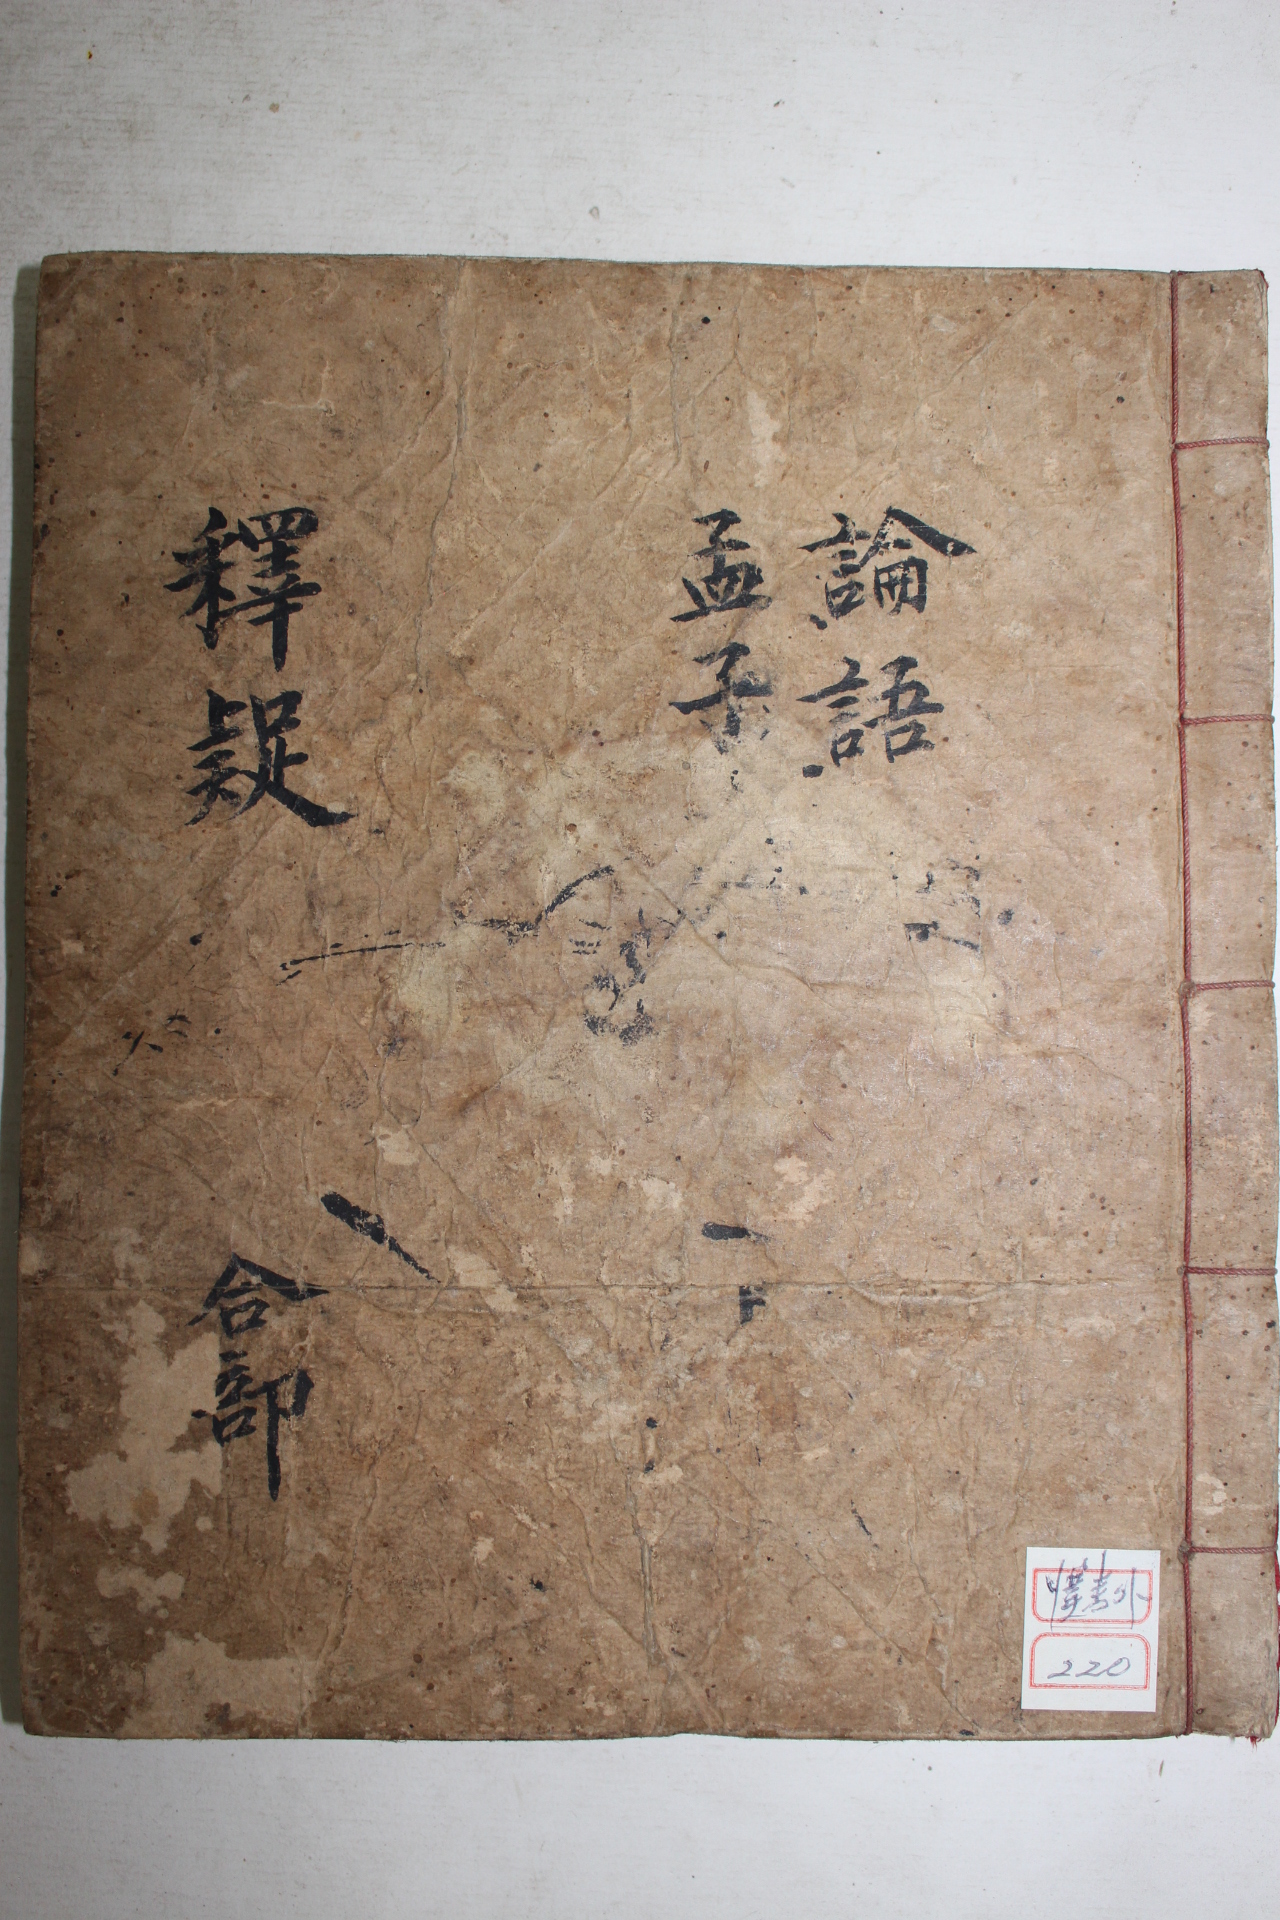 論語
孟子
釋疑
合部
220